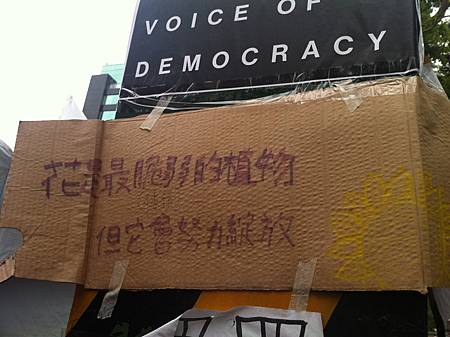 VOICE OF
DEMOCRACY
花是最脆弱的植物
但它會努力綻放